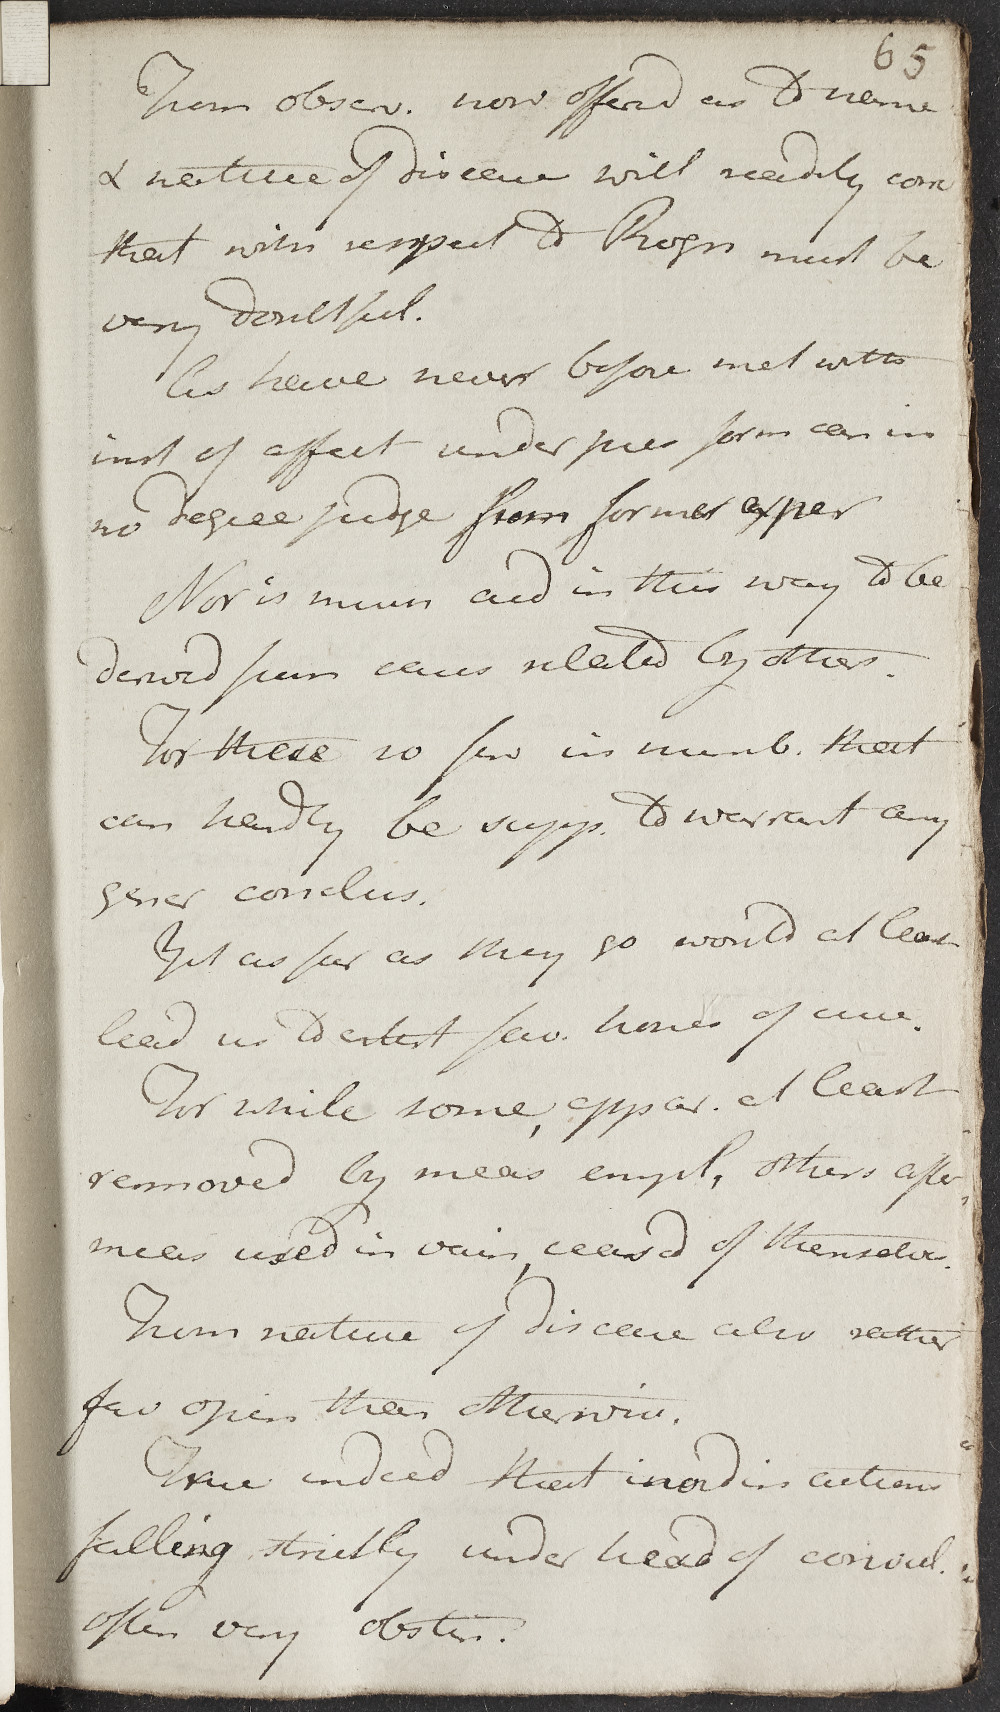 65
From observ. now offerd as to name
& nature of disease will readily con
that with respect to Progn must be
very doubtful.
As have never before met with
inst of affect under pres form can in
no degree judge from former exper
Nor is much aid in this way to be
derived from cases related by others.
For these so few in numb. that
can hardly be supp. to warrant any
gener conclus.
Yet as far as they go would at least
lead us to entert fav. hopes of cure.
For while some, appar. at least
removed by meas empl, others after
meas used in vain, ceasd of themselves.
From nature of disease also rather
fav opin than otherwise.
True indeed that inordin actions
falling strictly under head of convul.
often very obstin.